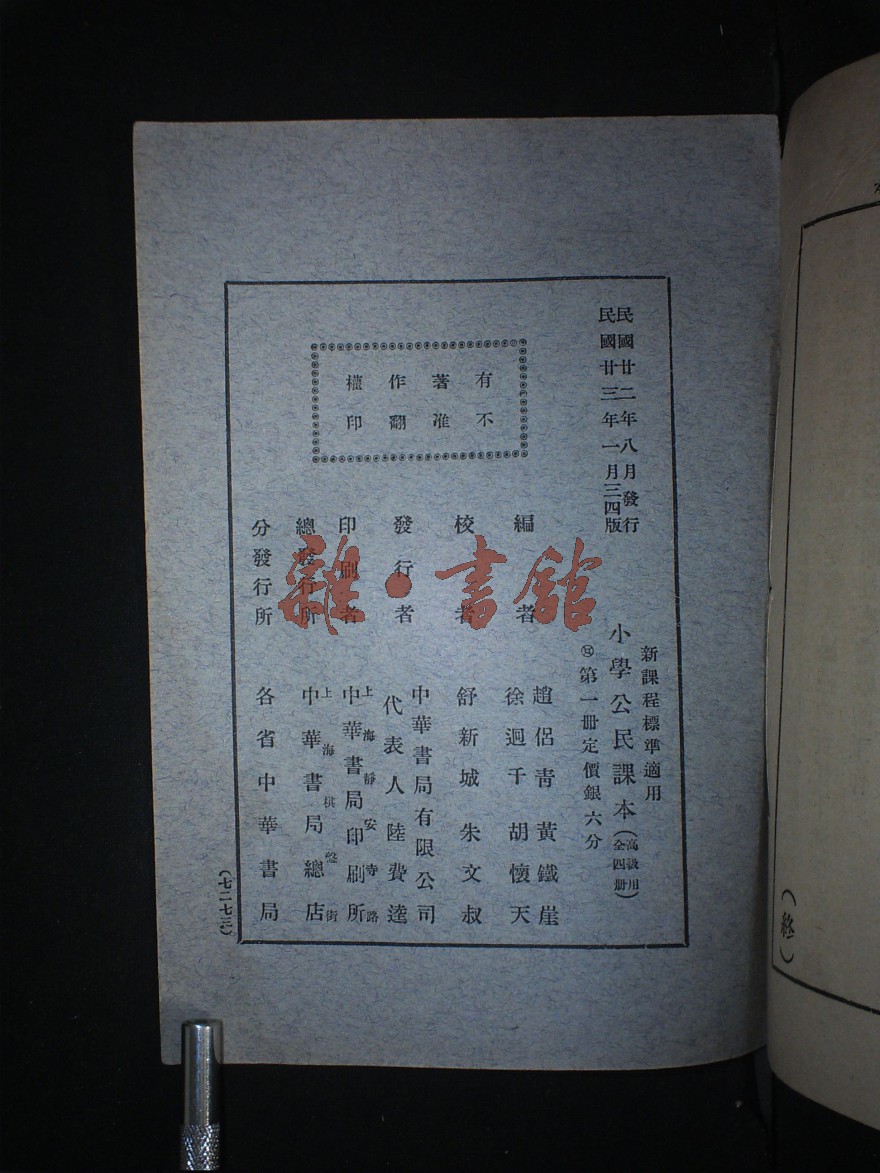 民國廿二年八月發行
民國廿三年一月三四版
有著作權
不准翻印
新課程標準適用
小學公民課本(高級用全四冊)
第一冊定價銀六分
編者
趙侶青 黃鐵崖
徐迥千 胡懷天
校者
舒新城 朱文叔
發行者
中華書局有限公司
代表人陸費逵
印刷者
上海靜安寺路
中華書局印刷所
總發行所
上海棋盤街
中華書局總店
分發行所
各省中華書局
(七二七三)
(終)
雜·書館